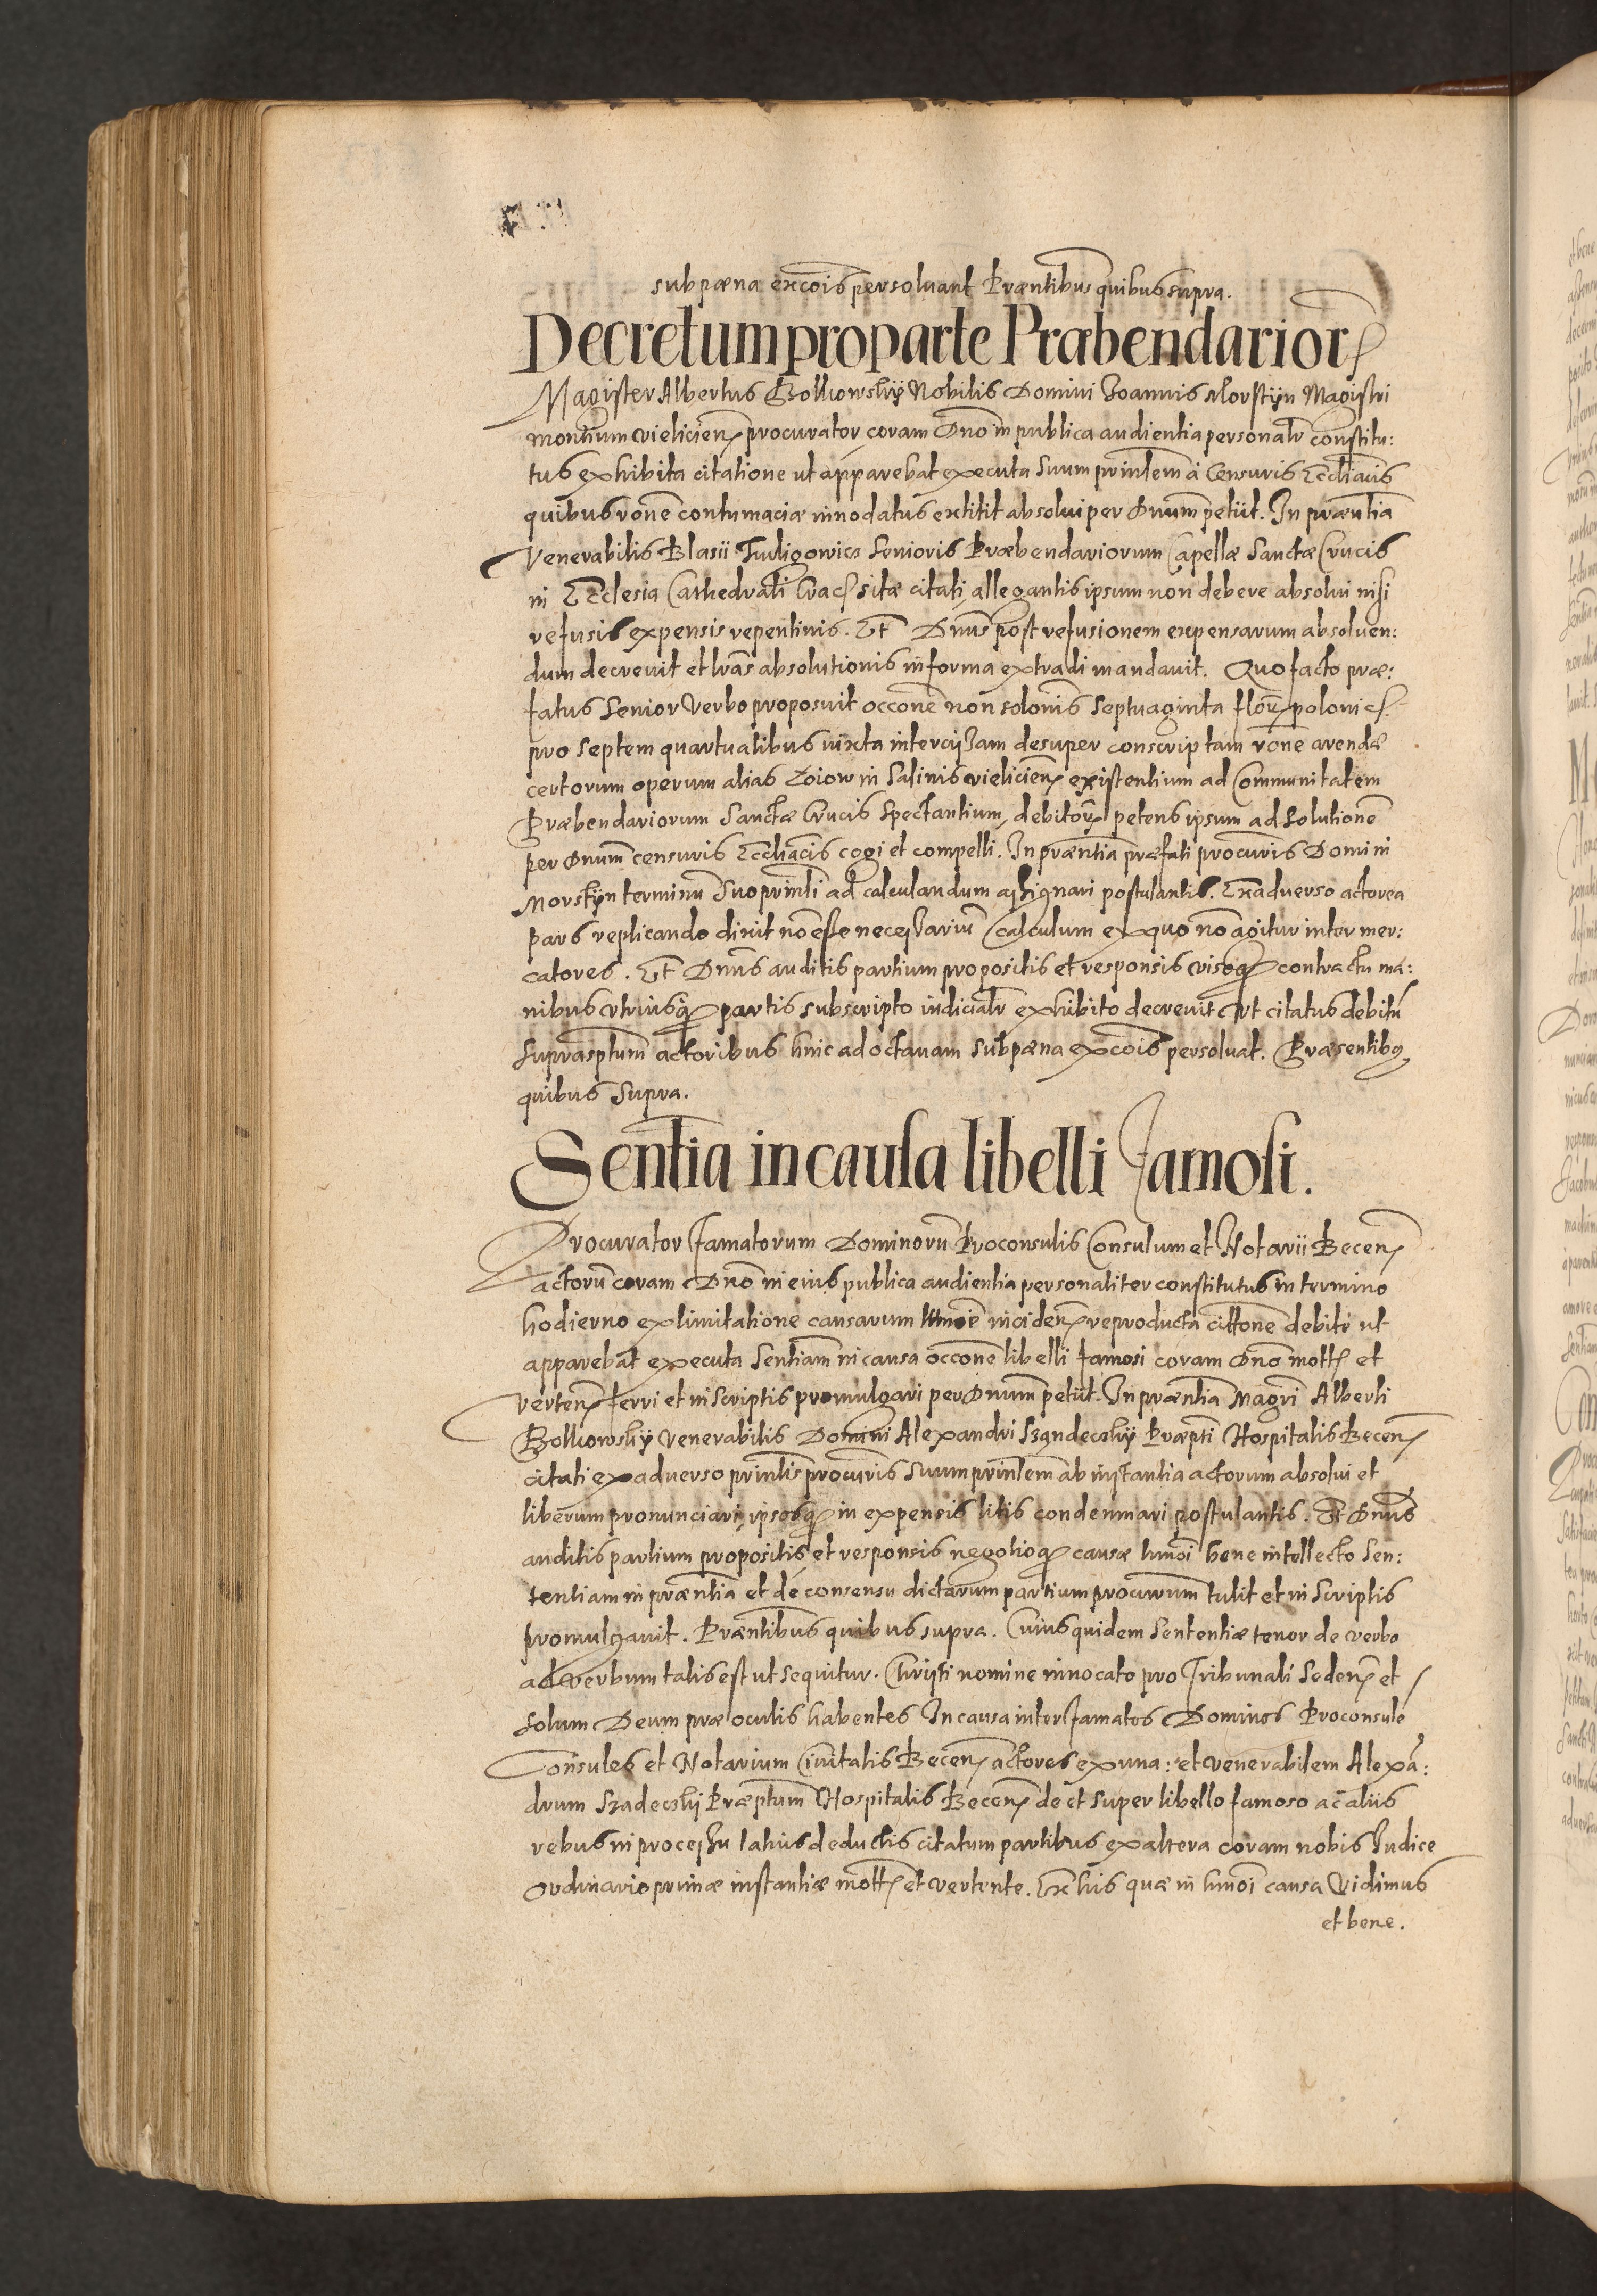 sub pæna excōis persoluant Præntibus quibus supra.
Decretum pro parte Præbendarior
Magister Albertus Nobilis Domini Joannis Morstÿn Magistri
montium vieliciēn procurator coram Dno in publica audientia personalr constitu:
tus exhibita citatione ut apparebat executa suum prinlem à Censuris Eccliacis
quibus rone contumaciæ innodatus extitit absolui per Dnum petiit. In præntia
Venerabilis Blasii Senioris Præbendariorum Capellæ Sanctæ Crucis
in Ecclesia Cathedrali Crac sitæ citati, allegantis ipsum non debere absolui nisi
refusis expensis repentinis. Et Dnus post refusionem expensarum absoluen:
dum decreuit et lras absolutionis in forma extradi mandauit. Quo facto præ:
fatus Senior Verbo proposuit occone non solonis Septuaginta flor polonic
pro septem quartualibus iuxta intercisam desuper conscriptam rone arendæ
certorum operum alias Zoiow in Salinis vieliciēn existentium ad Communitatem
Præbendariorum Sanctæ Crucis Spectantium, debitor petens ipsum ad solutione
per Dnum censuris Eccliacis cogi et compelli. In præntia præfati procuris Domini
Morstÿn terminū suo prinli ad calculandum assignari postulantis. Ex aduerso actorea
pars replicando dixit nō esse necessariū Calculum ex quo nō agitur inter mer:
catores. Et Dnus auditis partium propositis et responsis visoq contractu ma:
nibus vtriusq partis subscripto iudicialr exhibito decreuit vt citatus debitū
suprasptum actoribus hinc ad octauam sub pæna excōis persoluat. Præsentibq
quibus supra.
Sentia in causa libelli famosi.
Procurator famatorum Dominorū Proconsulis Consulum et Notarii Becen
actorū coram Dno in eius publica audientia personaliter constitutus in termino
hodierno ex limitatione causarum inciden reproducta cittone debite ut
apparebat executa Sentiam in causa occone libelli famosi coram Dno mott et
verten ferri et in scriptis promulgari per Dnum petiit. In præntia Magri Alberti
Venerabilis Domini Alexandri Præpti Hospitalis Becen
citati ex aduerso prinlis procuris suum prinlem ab instantia actorum absolui et
liberum pronunciari, ipsosq in expensis litis condemnari postulantis. Et Dnus
auditis partium propositis et responsis negotioq causæ hmōi bene intellecto Sen:
tentiam in præntia et de consensu dictarum partium procurum tulit et in scriptis
promulgauit. Præntibus quibus supra. Cuius quidem Sententiæ tenor de verbo
ad verbum talis est ut sequitur. Christi nomine inuocato pro Tribunali Seden et
solum Deum præ oculis habentes In causa inter famatos Dominos Proconsule
Consules et Notarium Ciuitatis Becen actores ex una: et venerabilem Alexā:
drum Præptum Hospitalis Becen de et super libello famoso ac aliis
rebus in processu latius deductis citatum partibus ex altera coram nobis Judice
Ordinario primæ instantiæ mott et vertente. Ex his quæ in hmōi causa Vidimus
et bene.